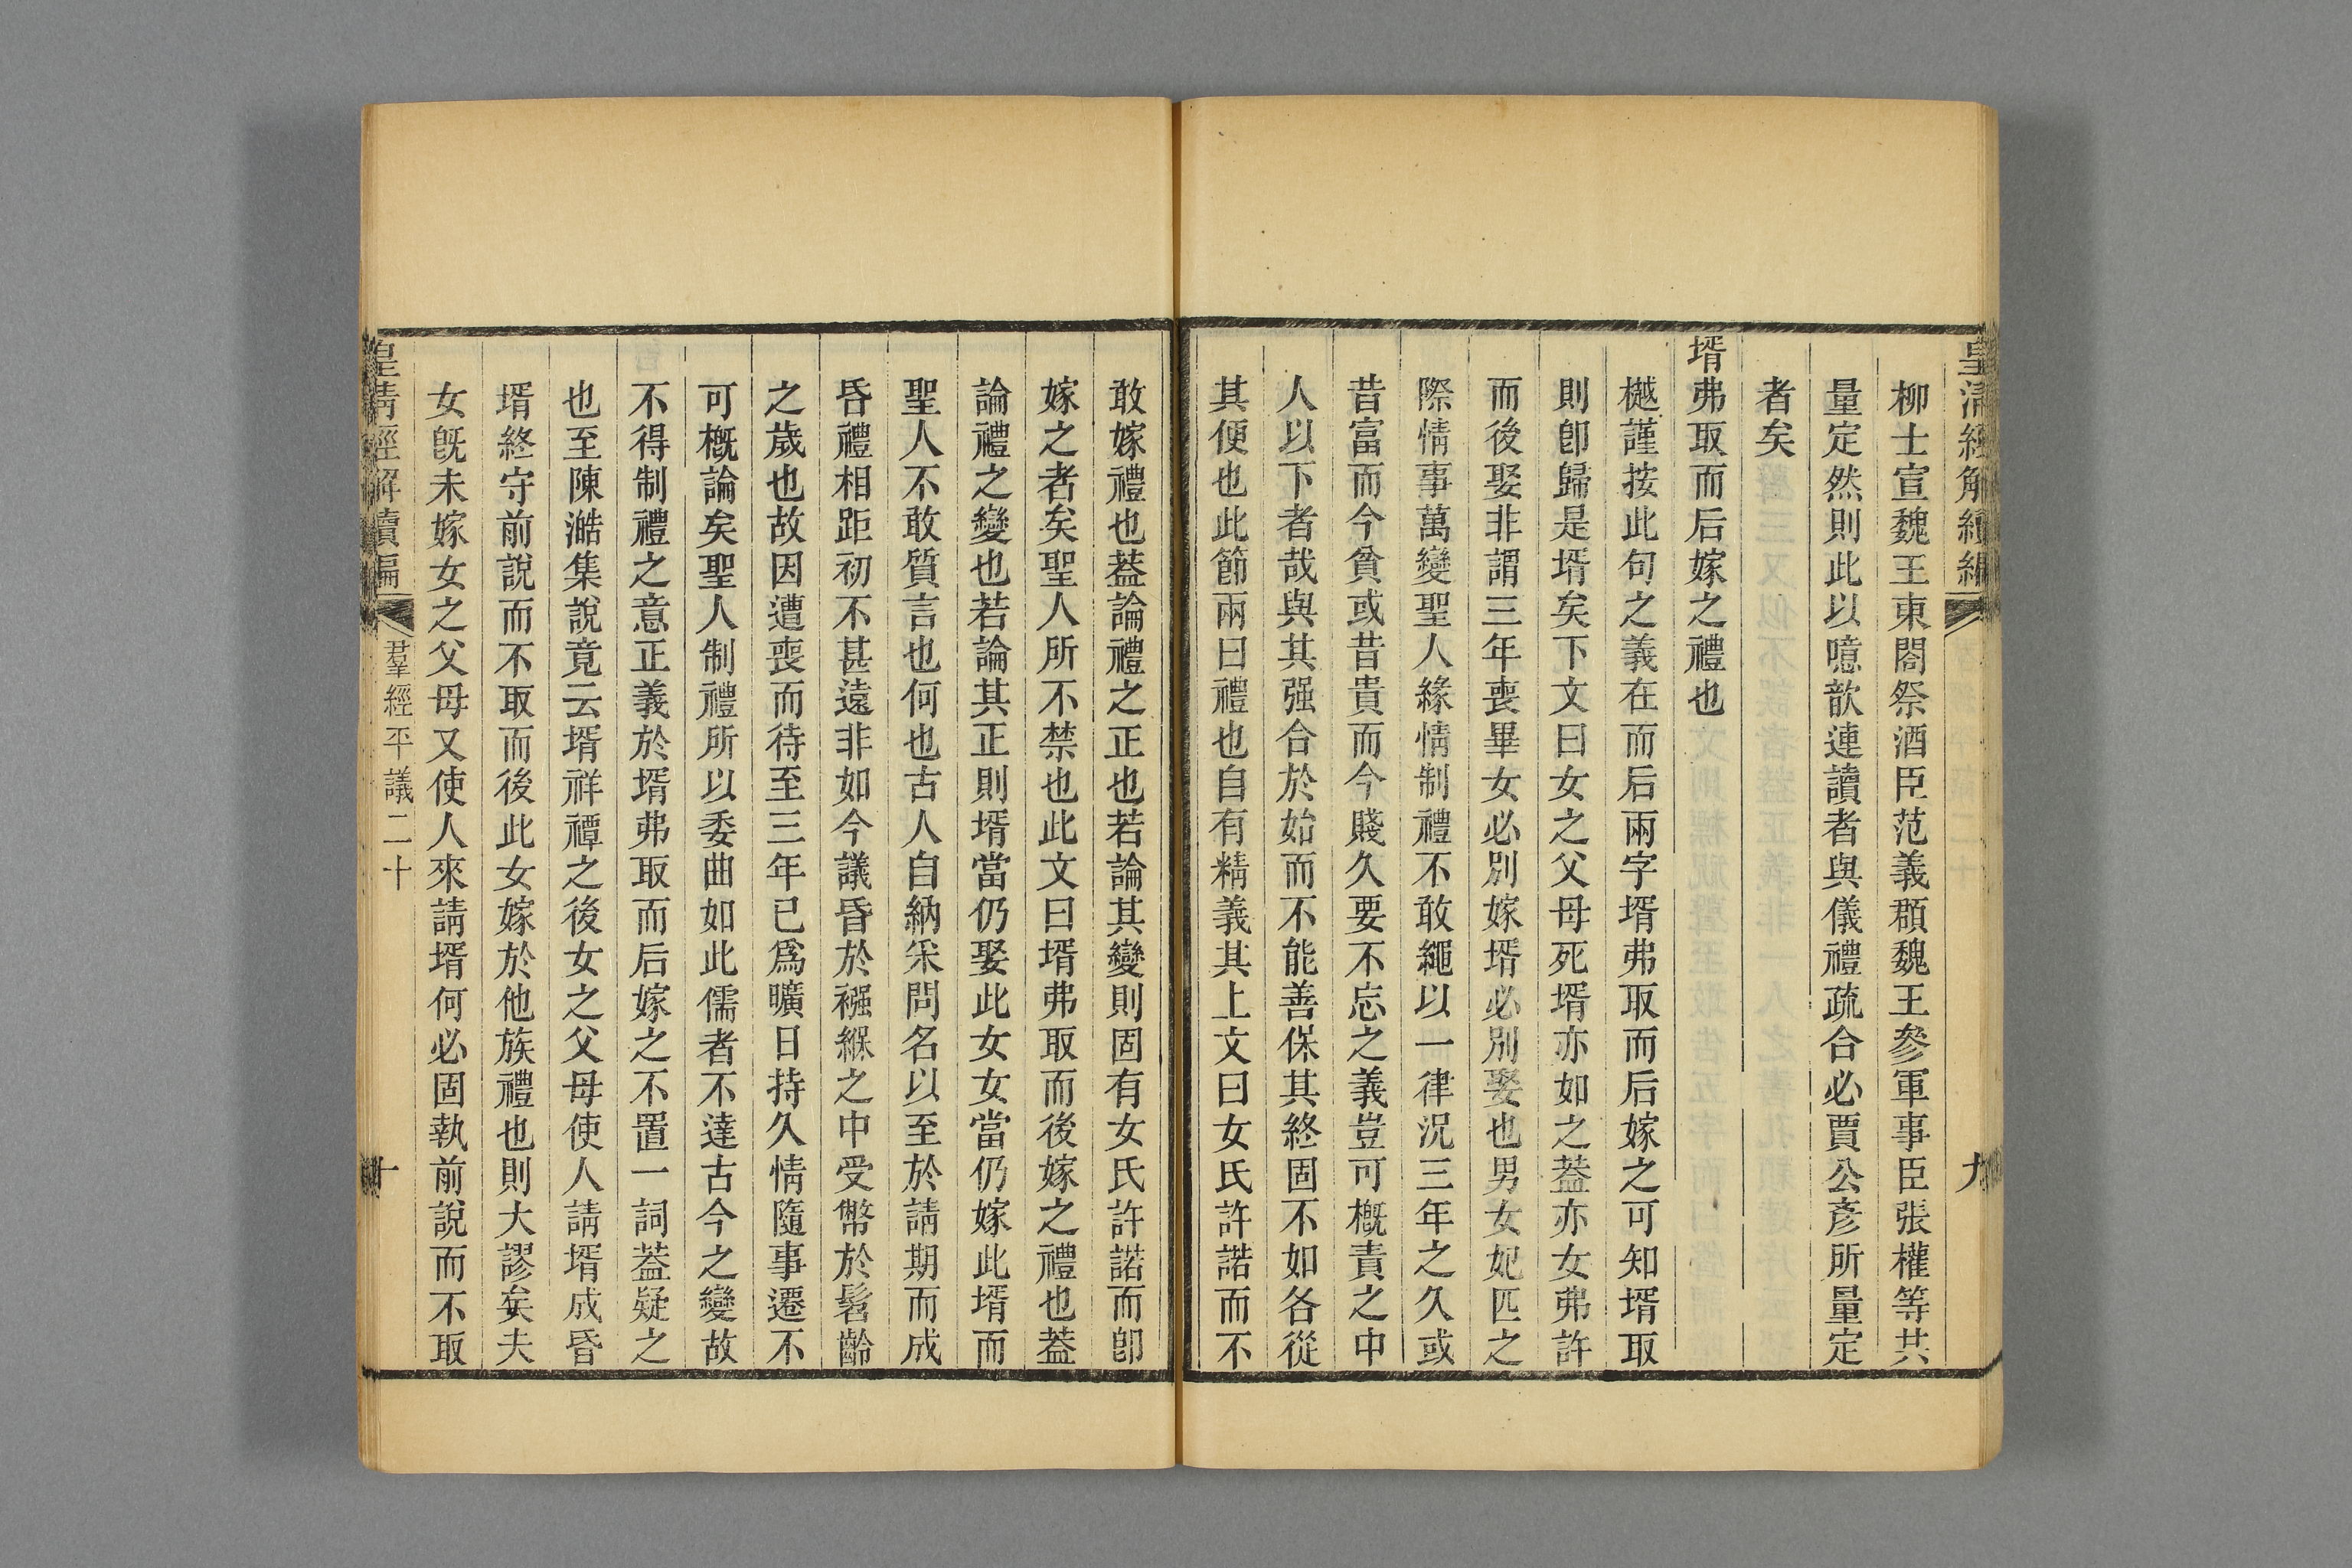 皇清經解續編
九
柳士宣魏王東閤祭酒臣范義頵魏王參軍事臣張權等共
量定然則此以噫歆連讀者與儀禮疏合必賈公彥所量定
者矣
壻弗取而后嫁之禮也
樾謹按此句之義在而后兩字壻弗取而后嫁之可知壻取
則卽歸是壻矣下文曰女之父母死壻亦如之葢亦女弗許
而後娶非謂三年喪畢女必別嫁壻必別娶也男女妃匹之
際情事萬變聖人緣情制禮不敢繩以一律況三年之久或
昔富而今貧或昔貴而今賤久要不忘之義豈可槪責之中
人以下者哉與其强合於始而不能善保其終固不如各從
其便也此節兩曰禮也自有精義其上文曰女氏許諾而不
敢嫁禮也葢論禮之正也若論其變則固有女氏許諾而卽
嫁之者矣聖人所不禁也此文曰壻弗取而後嫁之禮也葢
論禮之變也若論其正則壻當仍娶此女女當仍嫁此壻而
聖人不敢質言也何也古人自納采問名以至於請期而成
昏禮相距初不甚遠非如今議昏於襁緥之中受幣於髫齡
之歲也故因遭喪而待至三年已爲曠日持久情隨事遷不
可槪論矣聖人制禮所以委曲如此儒者不達古今之變故
不得制禮之意正義於壻弗取而后嫁之不置一詞葢疑之
也至陳澔集說竟云壻祥禫之後女之父母使人請壻成昏
壻終守前說而不取而後此女嫁於他族禮也則大謬矣夫
女旣未嫁女之父母又使人來請壻何必固執前說而不取
皇清經解續編
羣經平議二十
十